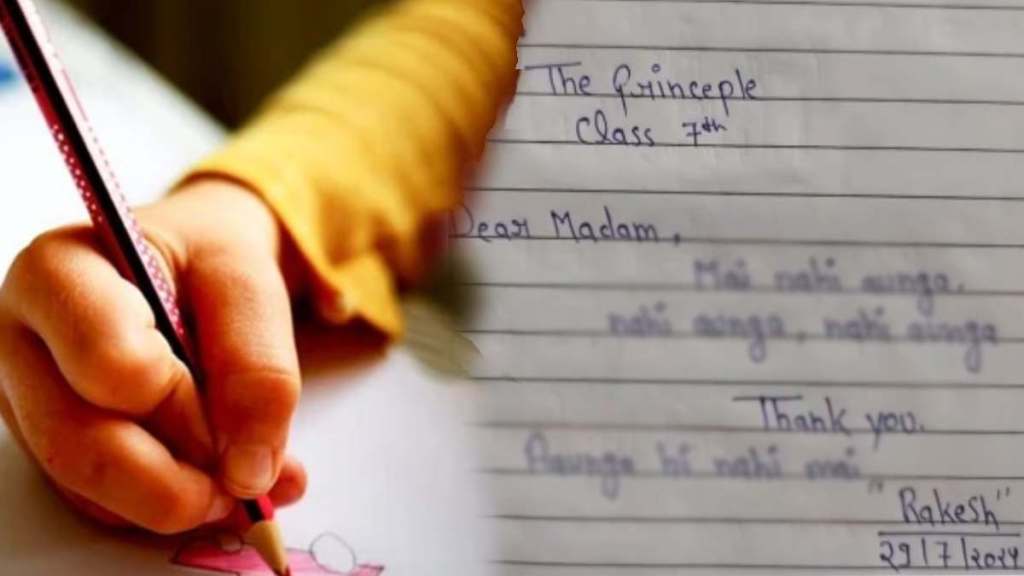 The Princeple
Class 7th
Dear Madam,
Mai nahi aunga.
nahi aunga, nahi aunga
Thank you.
Aaunga hi nahi mai
"Rakesh"
29/7/2024